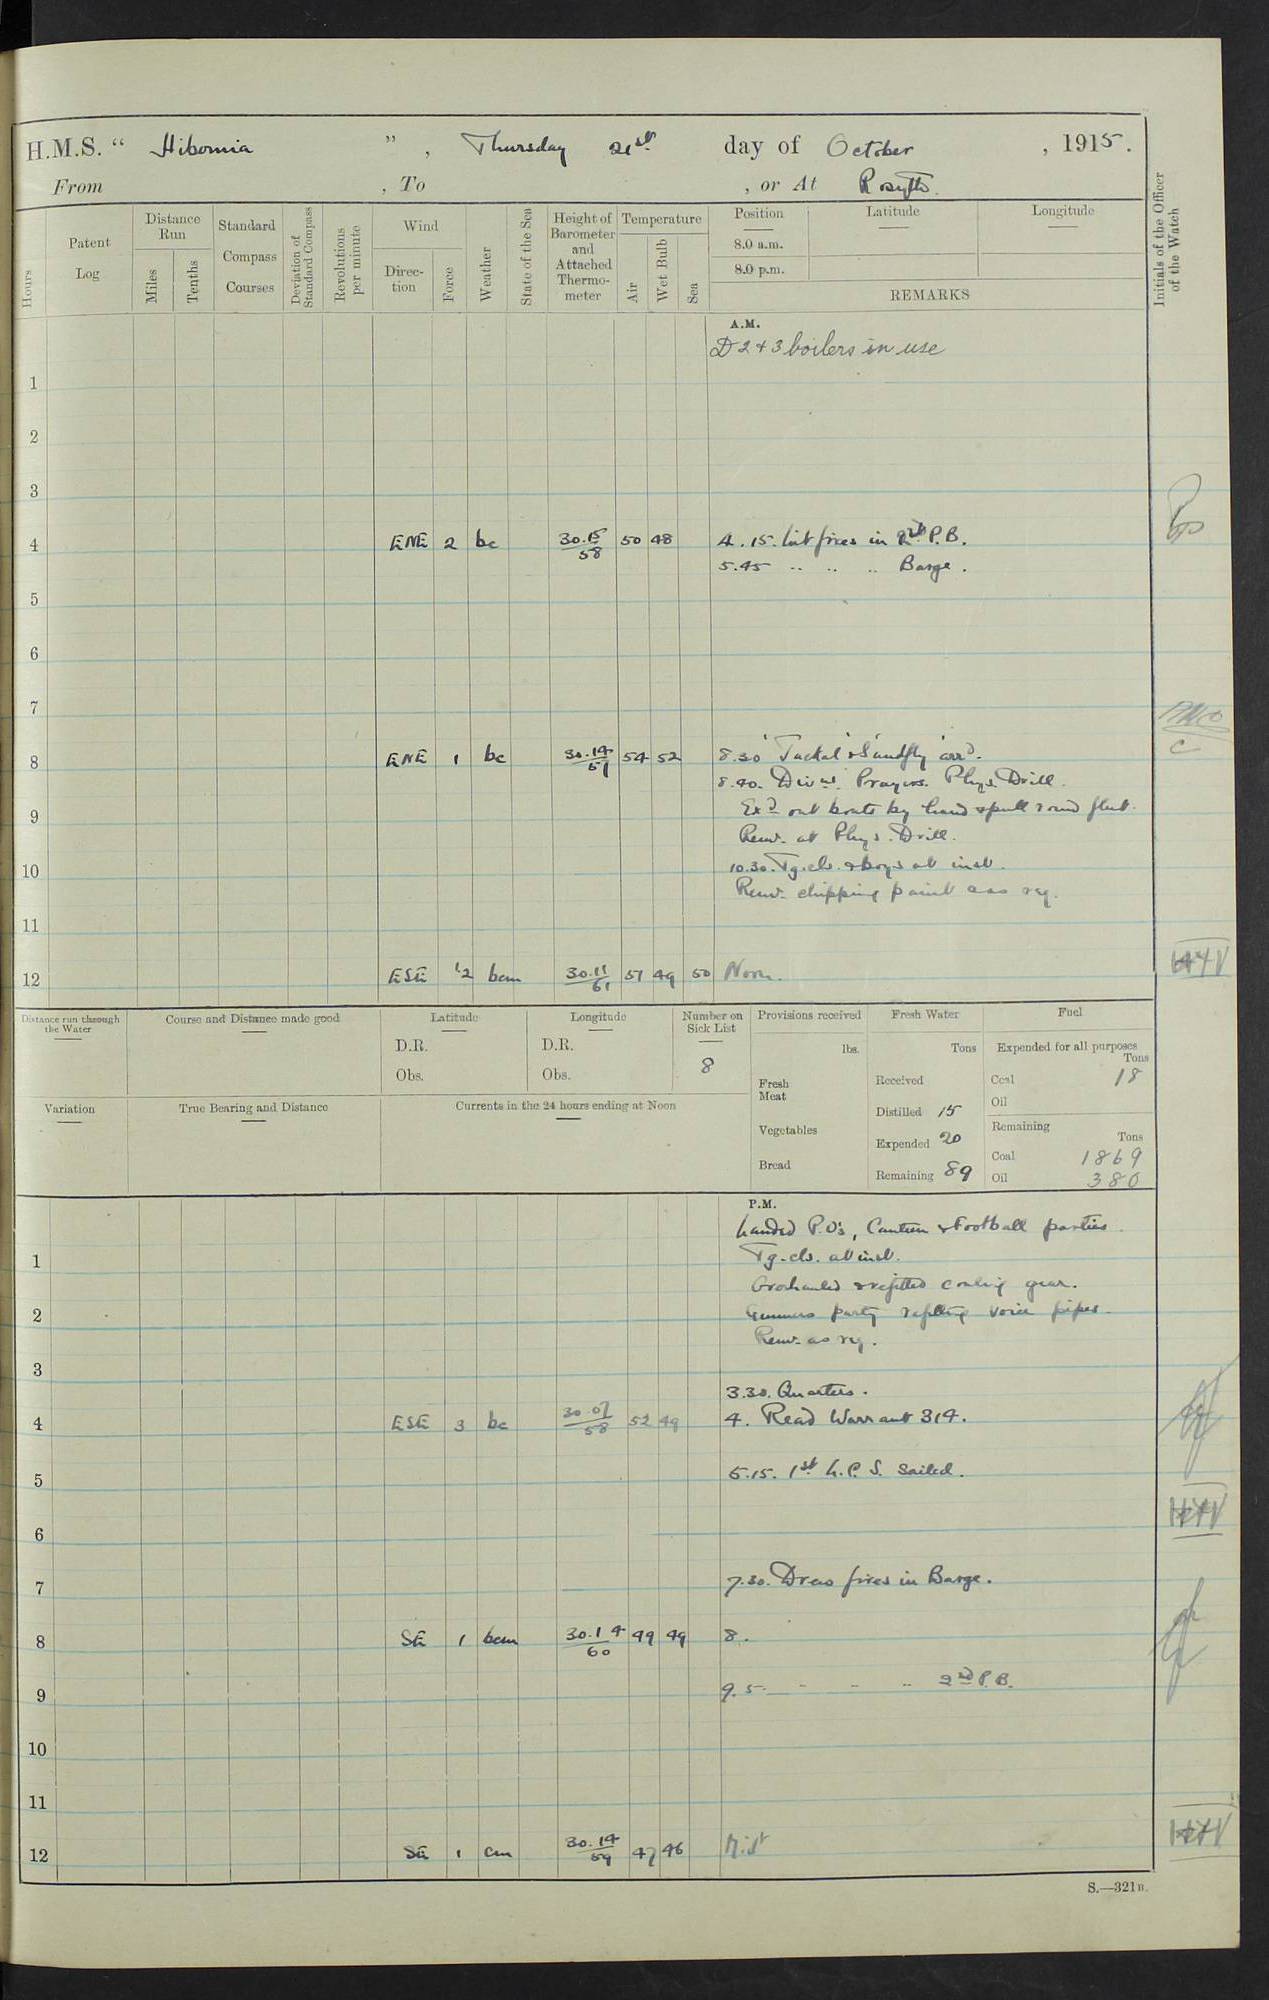 H.M.S. “ Hibernia ” , Thursday 21st day of October , 1915.
From , To , or At Rosyth.
Hours
Patent Log
Distance Run
Miles
Tenths
Standard Compass Courses
Deviation of Standard Compass
Revolutions per minute
Wind
Direction
Force
Weather
State of the Sea
Height of Barometer and Attached Thermometer
Temperature
Air
Wet Bulb
Sea
Position
8.0 a.m.
8.0 p.m.
Latitude
Longitude
REMARKS
Initials of the Officer of the Watch
A.M.
D 2 & 3 boilers in use
1
2
3
4 ENE 2 bc 30.15/58 50 48 4.15. Lit fires in 2nd P.B.
5.45 .. .. .. Barge.
5
6
7
8 ENE 1 bc 30.14/57 54 52 8.30 'Jackal' & 'Sandfly' arrd.
8.40. Divns. Prayers. Phys. Drill.
9 Exd out boats by hand & pull round fleet.
Remr. at Phys. Drill.
10 10.30. Tg. cls. & boys at inst.
Remr. chipping paint & as req.
11
12 ESE 1/2 bcm 30.11/61 51 49 50 Noon.
HHV
Distance run through the Water
Course and Distance made good
Latitude
D.R.
Obs.
Longitude
D.R.
Obs.
Number on Sick List
8
Provisions received
lbs.
Fresh Meat
Vegetables
Bread
Fresh Water
Tons
Received
Distilled 15
Expended 20
Remaining 89
Fuel
Expended for all purposes
Tons
Coal 18
Oil
Remaining
Tons
Coal 1869
Oil 380
Variation
True Bearing and Distance
Currents in the 24 hours ending at Noon
P.M.
Landed P.O's, Canteen & Football parties.
1 Tg. cls. at inst.
Overhauled & refitted coaling gear.
2 Gunners party refitting voice pipes.
Remr. as req.
3
3.30. Quarters.
4 ESE 3 bc 30.07/58 52 49 4. Read Warrant 314.
5 5.15. 1st L.C.S. sailed.
HHV
6
7 7.30. Drew fires in Barge.
8 SE 1 bcm 30.14/60 49 49 8.
9 9.5. — - - .. 2nd P.B.
10
11
12 SE 1 cm 30.14/59 47 46 Mid t
HHV
S.—321B.